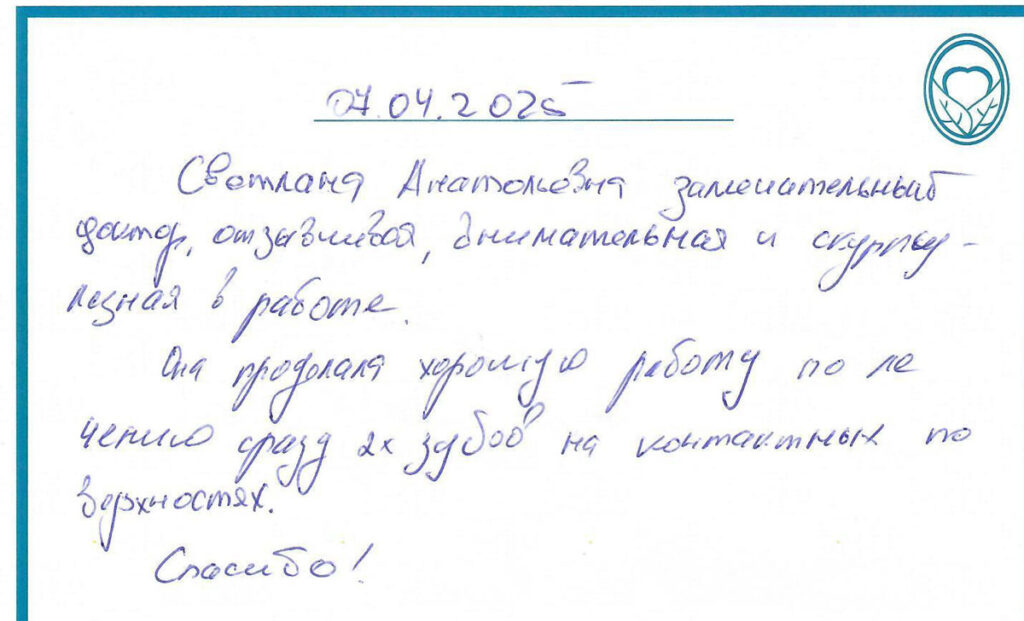 07.04.2025
Светлана Анатольевна замечательный
доктор, отзывчивая, внимательная и скурпу-
лезная в работе.
Она проделала хорошую работу по ле
чению сразу 2х зубов на контактных по
верхностях.
Спасибо!